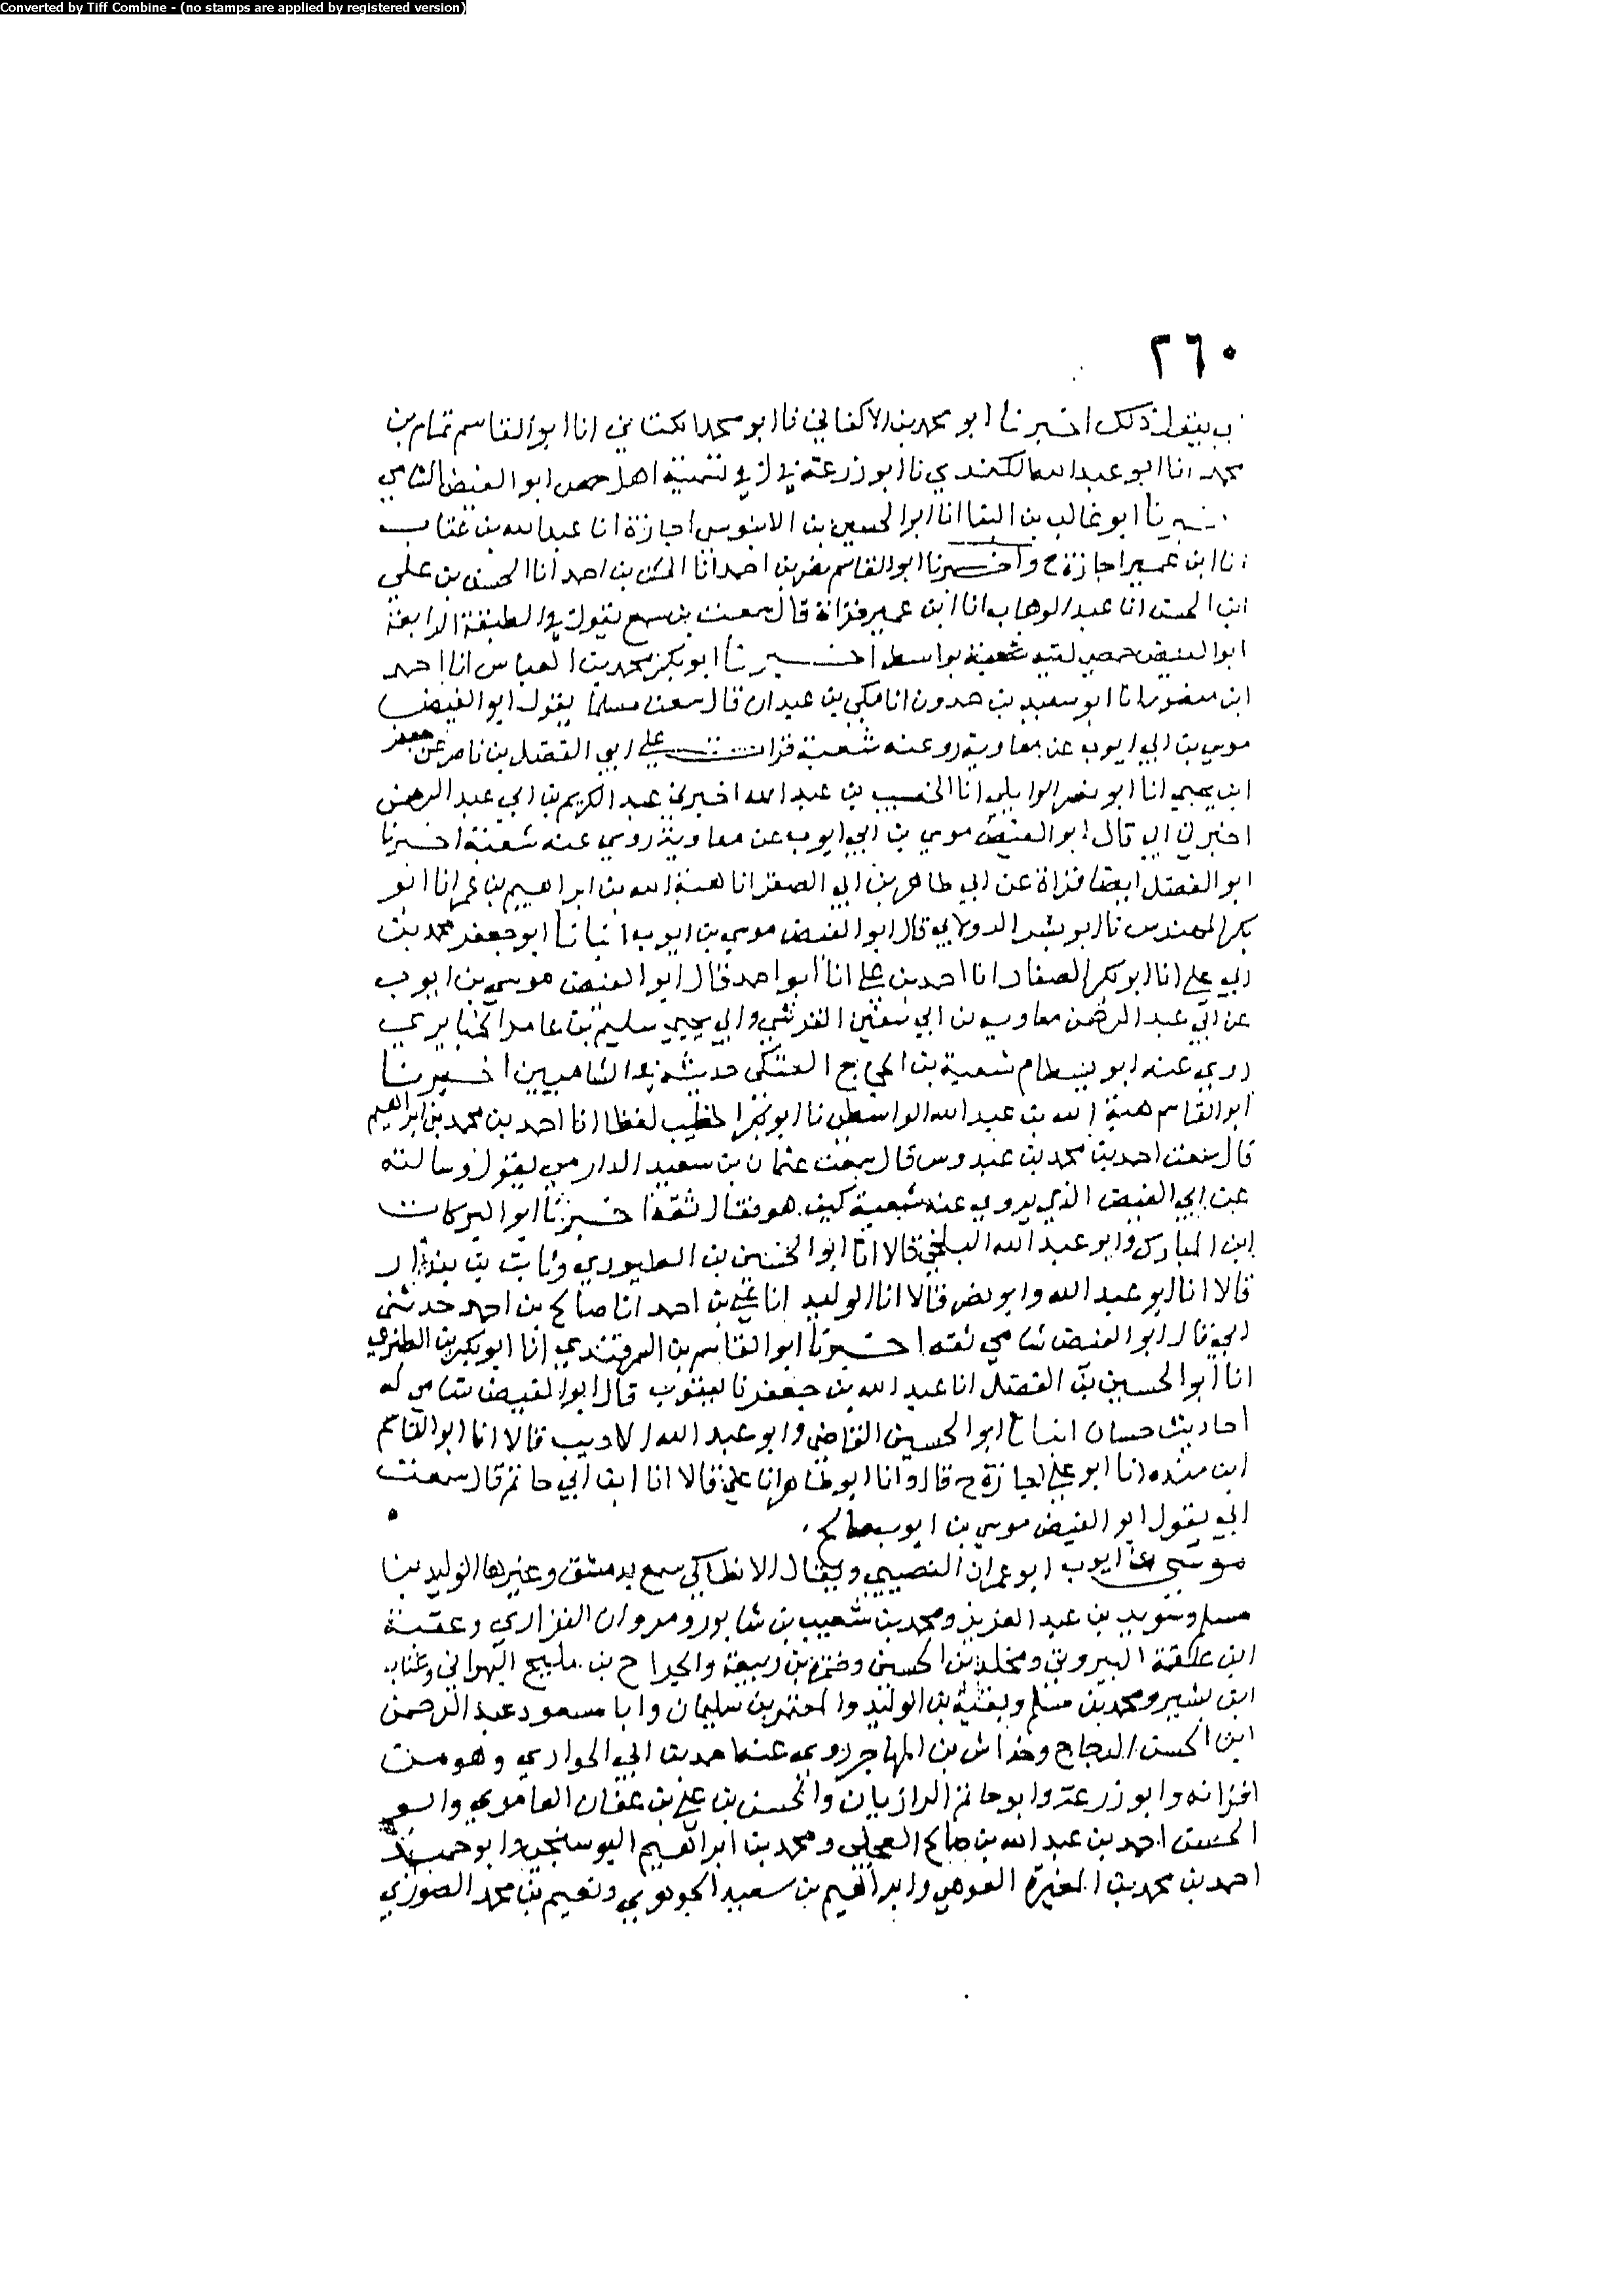 Converted by Tiff Combine - (no stamps are applied by registered version)
٢٦٠
ذلك اخبرنا ابو محمد بن الاكفاني نا ابو محمد الكتاني انا ابو القاسم تمام بن
محمد انا ابو عبد الله الكندي نا ابو زرعة في تسمية اهل حمص ابو الفيض الشامي
ابو غالب بن البنا انا ابو الحسين بن الابنوسي اجازة انا عبد الله بن عتاب
انا ابن عمير اجازة ح واخبرنا ابو القاسم نصر بن احمد انا الحسن بن احمد انا الحسن بن علي
انا عبد الوهاب انا ابن عمير قراة قال سمعت بن سميع يقول في الطبقة الرابعة
ابو الفيض حمصي لقيه شعبة بواسط اخبرنا ابو بكر محمد بن العباس انا احمد
ابن منصور انا ابو سعيد بن حمدون انا مكي بن عبدان قال سمعت مسلما يقول ابو الفيض
موسي بن ابي ايوب عن معاوية روي عنه شعبة قرات علي ابي الفضل بن ناصر عن جعفر
ابن يحيي انا ابو نصر الوايلي انا الخصيب بن عبد الله اخبرني عبد الكريم بن ابي عبد الرحمن
اخبرني ابي قال ابو الفيض موسي بن ابي ايوب عن معاوية روي عنه شعبة اخبرنا
ابو الفضل ايضا قراة عن ابي طاهر بن ابي الصقر انا هبة الله بن ابراهيم بن عمر انا ابو
بكر المهندس نا ابو بشر الدولابي قال ابو الفيض موسي بن ايوب انبانا ابو جعفر محمد بن
ابي علي انا ابو بكر الصفار انا احمد بن علي انا ابو احمد قال ابو الفيض موسي بن ايوب
عن ابي عبد الرحمن معاوية بن ابي سفين القرشي وابي يحيي سليم بن عامر الخبايري
روي عنه ابو بسطام شعبة بن الحجاج العتكي حديثه في الشاميين اخبرنا
ابو القاسم هبة الله بن عبد الله الواسطي نا ابو بكر الخطيب لفظا انا احمد بن محمد بن ابراهيم
قال سمعت احمد بن محمد بن عبدوس قال سمعت عثمان بن سعيد الدارمي يقول وسالته
عن ابي الفيض الذي يروي عنه شعبة كيف هو فقال ثقة اخبرنا ابو البركات
ابن المبارك وابو عبد الله البلخي قالا انا ابو الحسين بن الطيوري وثابت بن بندار
قالا انا ابو عبد الله وابو نصر قالا انا الوليد انا علي بن احمد انا صالح بن احمد حدثني
ابي قال ابو الفيض شامي ثقة اخبرنا ابو القاسم بن السمرقندي انا ابو بكر بن الطبري
انا ابو الحسين بن الفضل انا عبد الله بن جعفر نا يعقوب قال ابو الفيض شامي له
احاديث حسان انبا ابو الحسين القاضي وابو عبد الله الاديب قالا انا ابو القاسم
ابن منده انا ابو علي اجازة ح قال وانا ابو طاهر انا علي قالا انا ابن ابي حاتم قال سمعت
ابي يقول ابو الفيض موسي بن ايوب صالح .
موسي بن ايوب ابو عمران النصيبي ويقال الانطاكي سمع بدمشق وغيرها الوليد بن
مسلم وسويد بن عبد العزيز ومحمد بن شعيب بن شابور ومروان الفزاري وعقبة
ابن علقمة البيروتي ومخلد بن الحسين وضمرة بن ربيعة والجراح بن مليح البهراني وعتاب
ابن بشير ومحمد بن مسلم وبقية بن الوليد والمعتمر بن سليمان وابا مسعود عبد الرحمن
ابن الحسن الزجاج وخداش بن المهاجر روي عنه احمد بن ابي الحواري وهو من
اقرانه وابو زرعة وابو حاتم الرازيان والحسن بن علي بن عفان العامري وابو
الحسن احمد بن عبد الله بن صالح العجلي ومحمد بن ابراهيم البوسنجي وابو حميد
احمد بن محمد بن المغيرة العوهي وابراهيم بن سعيد الجوهري ونعيم بن محمد الصوري